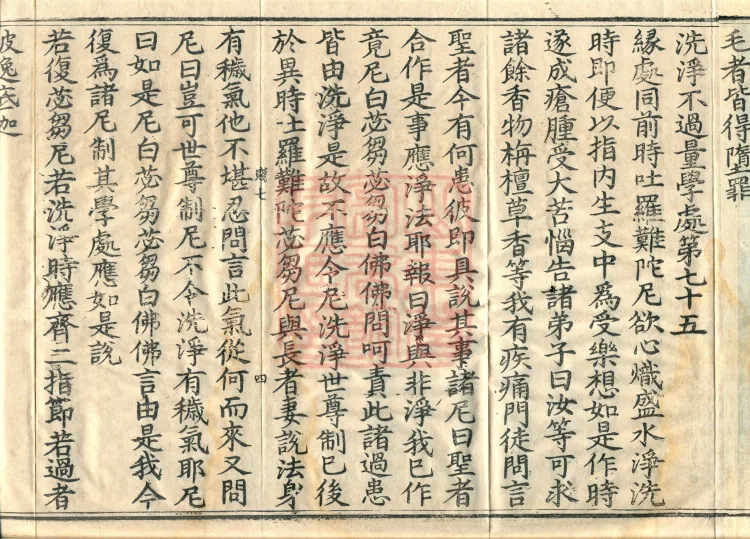 毛者皆得墮罪
洗淨不過量學處第七十五
緣處同前時吐羅難陀尼欲心熾盛水淨洗
時即便以指內生支中為受樂想如是作時
遂成瘡腫受大苦惱告諸弟子曰汝等可求
諸餘香物栴檀草香等我有疾痛門徒問言
聖者今有何患彼即具說其事諸尼曰聖者
合作是事應淨法耶報曰淨與非淨我已作
竟尼白苾芻苾芻白佛佛問呵責此諸過患
皆由洗淨是故不應令尼洗淨世尊制已後
於異時吐羅難陀苾芻尼與長者妻說法身
七
四
有穢氣他不堪忍問言此氣從何而來又問
尼曰豈可世尊制尼不令洗淨有穢氣耶尼
曰如是尼白苾芻苾芻白佛佛言由是我今
復為諸尼制其學處應如是說
若復苾芻尼若洗淨時應齊二指節若過者
波逸底迦